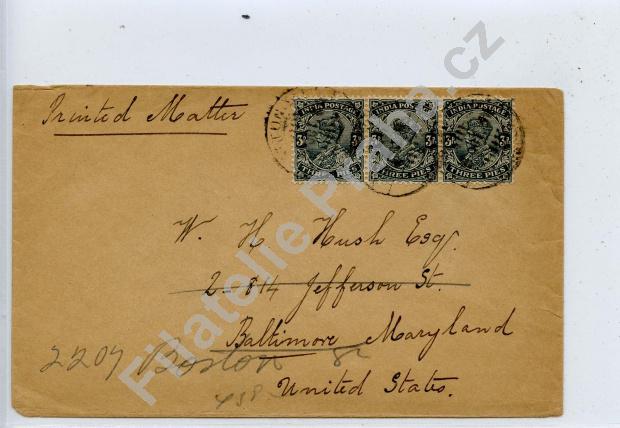 Printed Matter
INDIA POSTAGE INDIA POSTAGE INDIA POSTAGE
3P 3P 3P
THREE PIES THREE PIES THREE PIES
W. H. Hush Esq.
2814 Jefferson St.
Baltimore Maryland
2207 Boston St
United States.
Filatelie Praha.cz